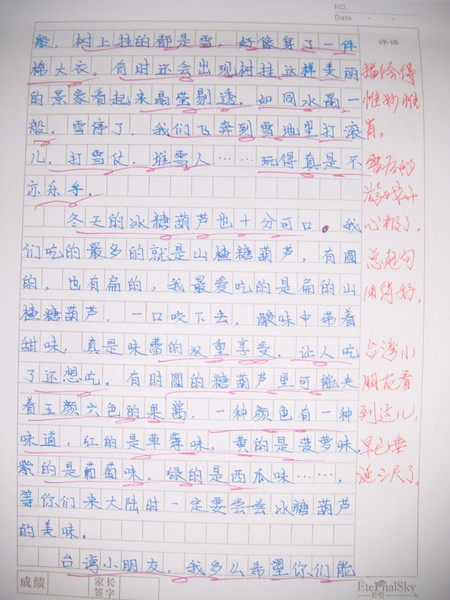 NO.
Date
评语
般，树上挂的都是雪，好像穿了一件
棉大衣。有时还会出现树挂这样美丽
的景象看起来晶莹剔透，如同水晶一
般。雪停了，我们飞奔到雪地里打滚
儿，打雪仗，堆雪人……玩得真是不
亦乐乎。
冬天的冰糖葫芦也十分可口。我
们吃的最多的就是山楂糖葫芦，有圆
的，也有扁的，我最爱吃的是扁的山
楂糖葫芦，一口咬下去，酸味中带着
甜味，真是味蕾的双重享受，让人吃
了还想吃。有时圆的糖葫芦里可能夹
着五颜六色的果酱，一种颜色有一种
味道，红的是草莓味，黄的是菠萝味，
紫的是葡萄味，绿的是西瓜味……，
等你们来大陆时一定要尝尝冰糖葫芦
的美味。
台湾小朋友，我多么希望你们能
描绘得
惟妙惟
肖。
雪后的
心
总起句
用得好。
台湾小
朋友看
到这儿，
早已垂
涎三尺了。
成绩
家长
签字
EternalSky